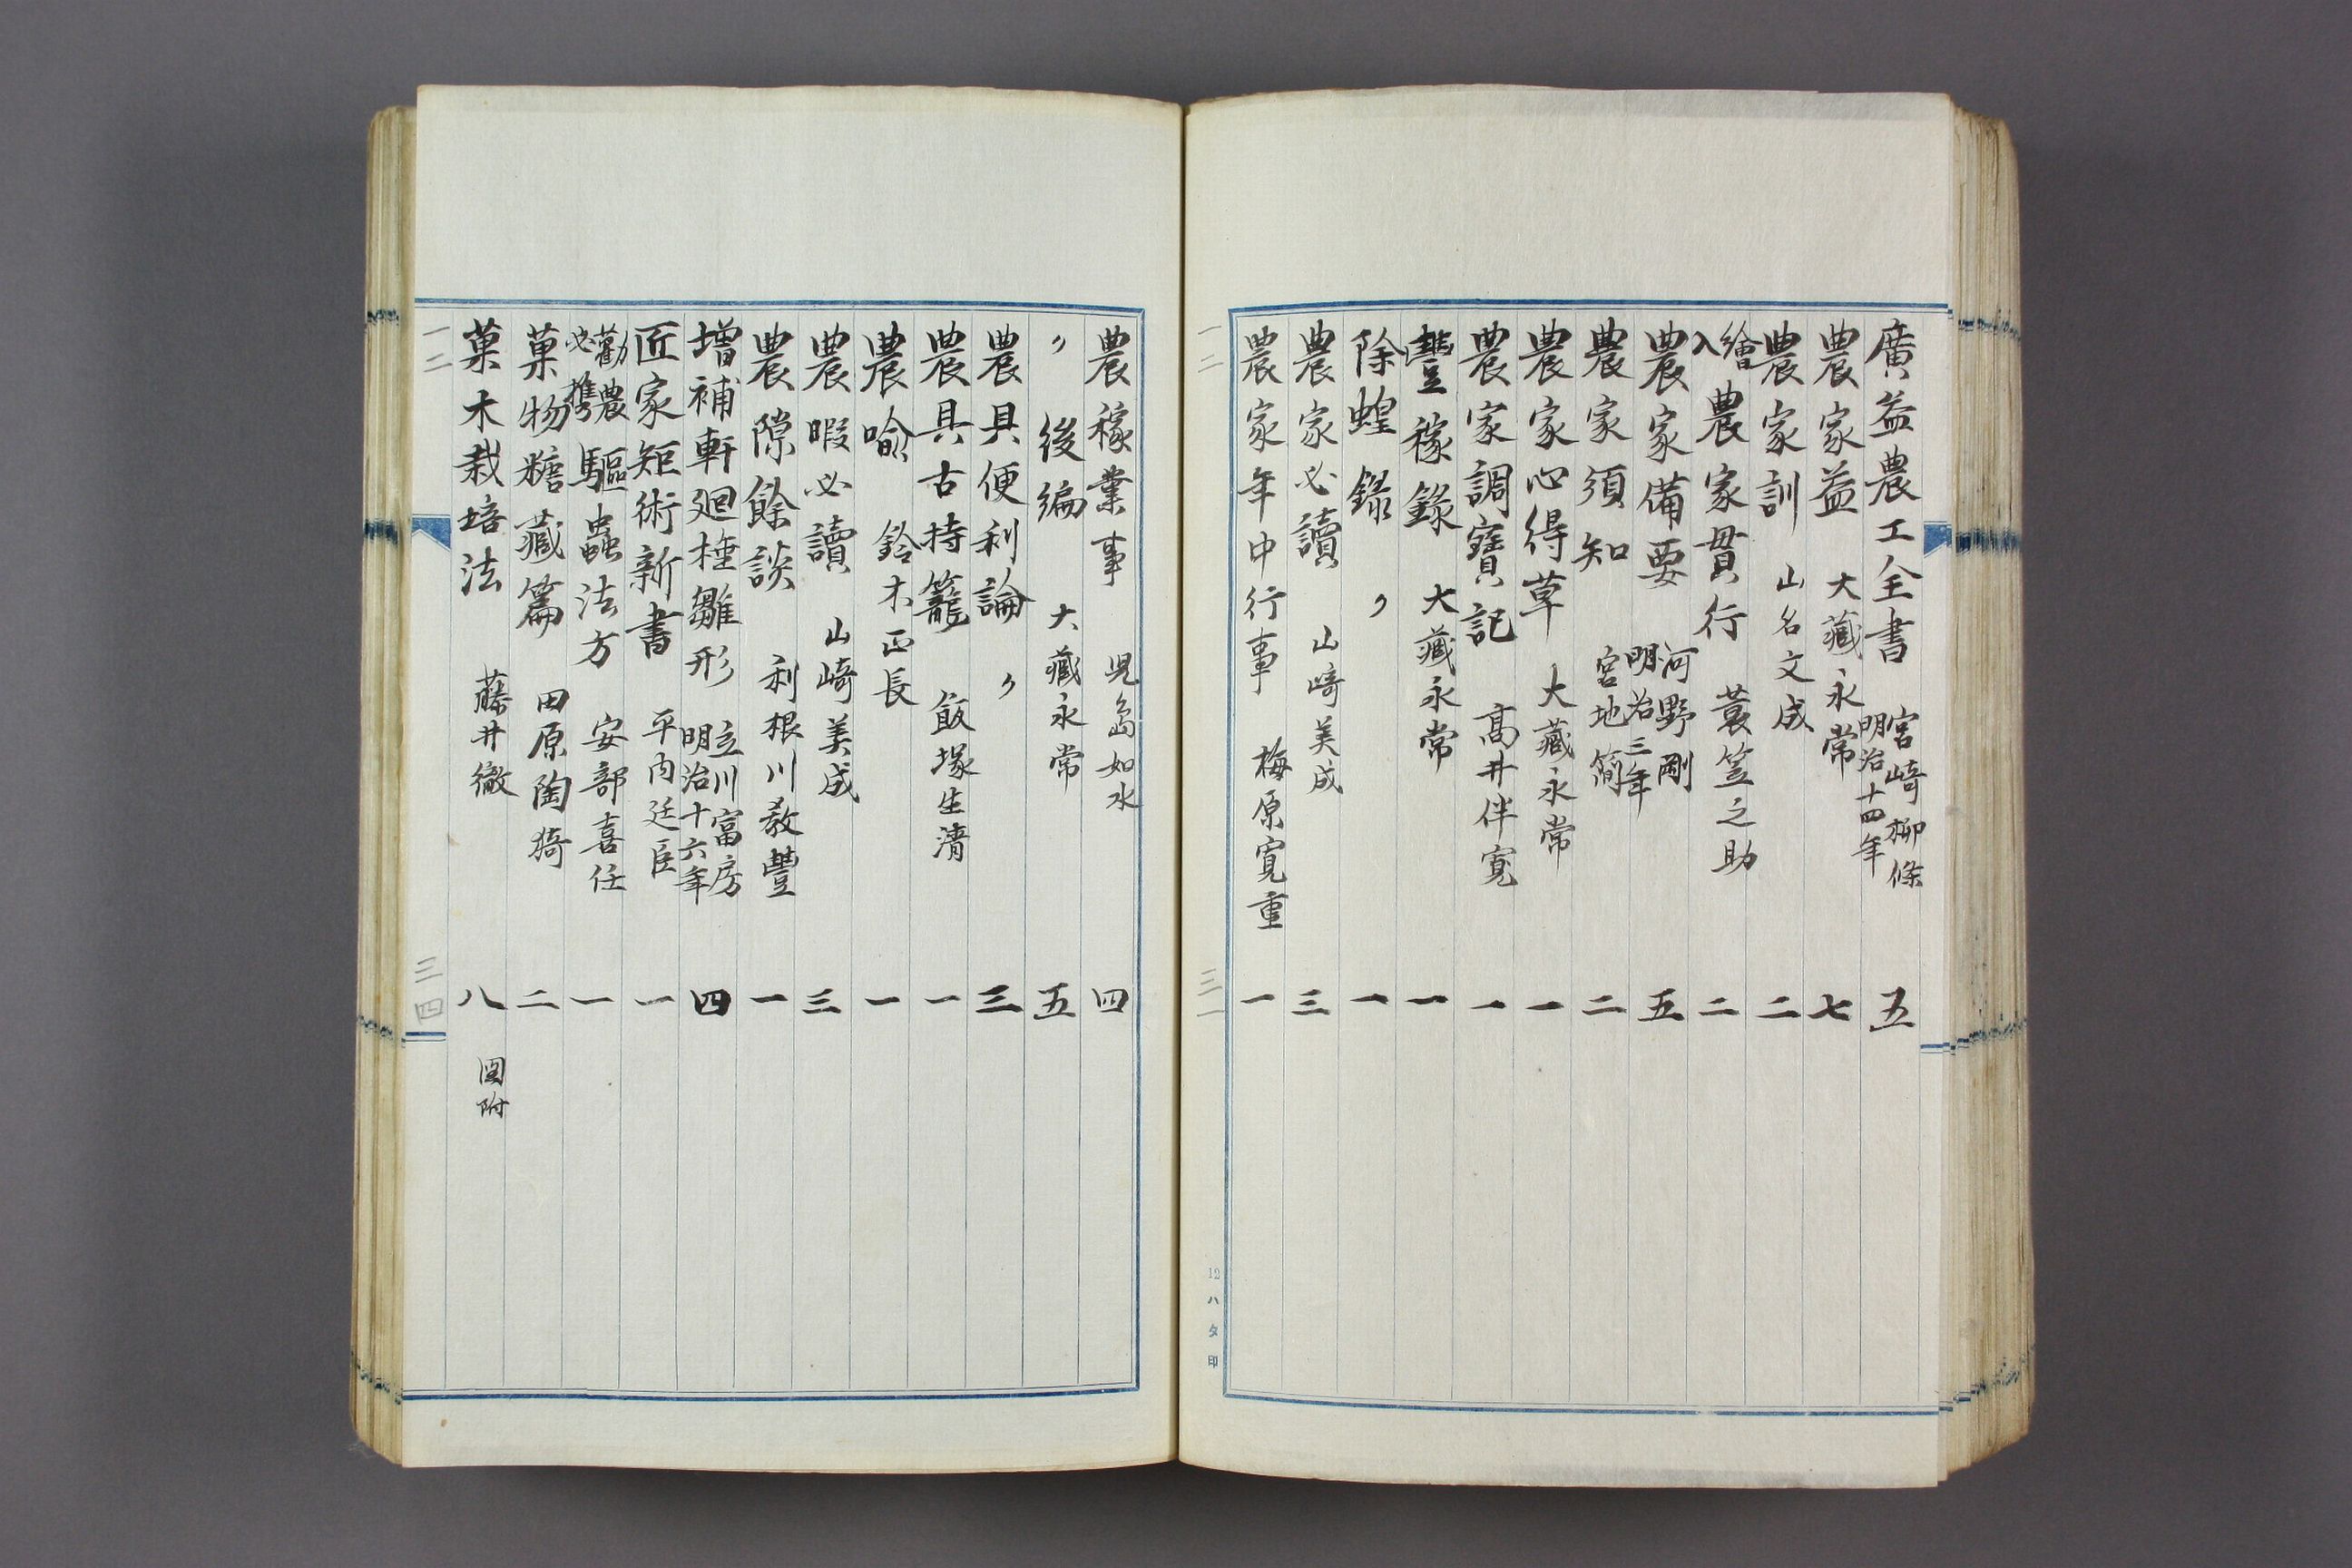 廣益農工全書 宮崎柳條 明治十四年 五
農家益 大藏永常 七
農家訓 山名文成 二
繪入農家貫行 蓑笠之助 二
農家備要 河野剛 明治三年 五
農家須知 宮地簡 二
農家心得草 大藏永常 一
農家調寶記 高井伴寛 一
豐稼錄 大藏永常 一
除蝗錄 〃 一
農家必讀 山崎美成 三
農家年中行事 梅原寛重 一
一二
三一
12ハタ印
農稼業事 児島如水 四
〃 後編 大藏永常 五
農具便利論 〃 三
農具古持籠 飯塚生清 一
農喩 鈴木正長 一
農暇必讀 山崎美成 三
農隙餘談 利根川教豐 一
增補軒廻極雛形 立川富房 明治十六年 四
匠家矩術新書 平内廷臣 一
勸農必携驅蟲法方 安部喜任 一
菓物糖藏篇 田原陶猗 二
菓木栽培法 藤井徹 八 圖附
一二
三四